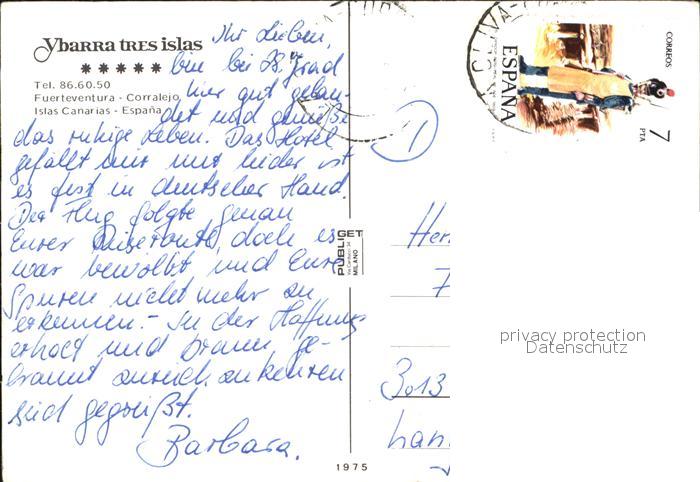 Ybarra tres islas
Tel. 86.60.50
Fuerteventura - Corralejo
Islas Canarias - España
Ihr Lieben,
bin bei 28 Grad
hier gut gelan-
det und genieße
das ruhige Leben. Das Hotel
gefällt mir nur leider ist
es fest in deutscher Hand.
Der Flug folgte genau
Eurer Reiseroute, doch es
war bewölkt und Eure
Spuren nicht mehr zu
erkennen. - In der Hoffnung
erholt und braun ge-
brannt zurückzukehren
seid gegrüßt.
Barbara.
1975
PUBLI GET
MILANO
1
Her
7
3013
han
CORREOS
ESPAÑA
7
PTA
privacy protection
Datenschutz